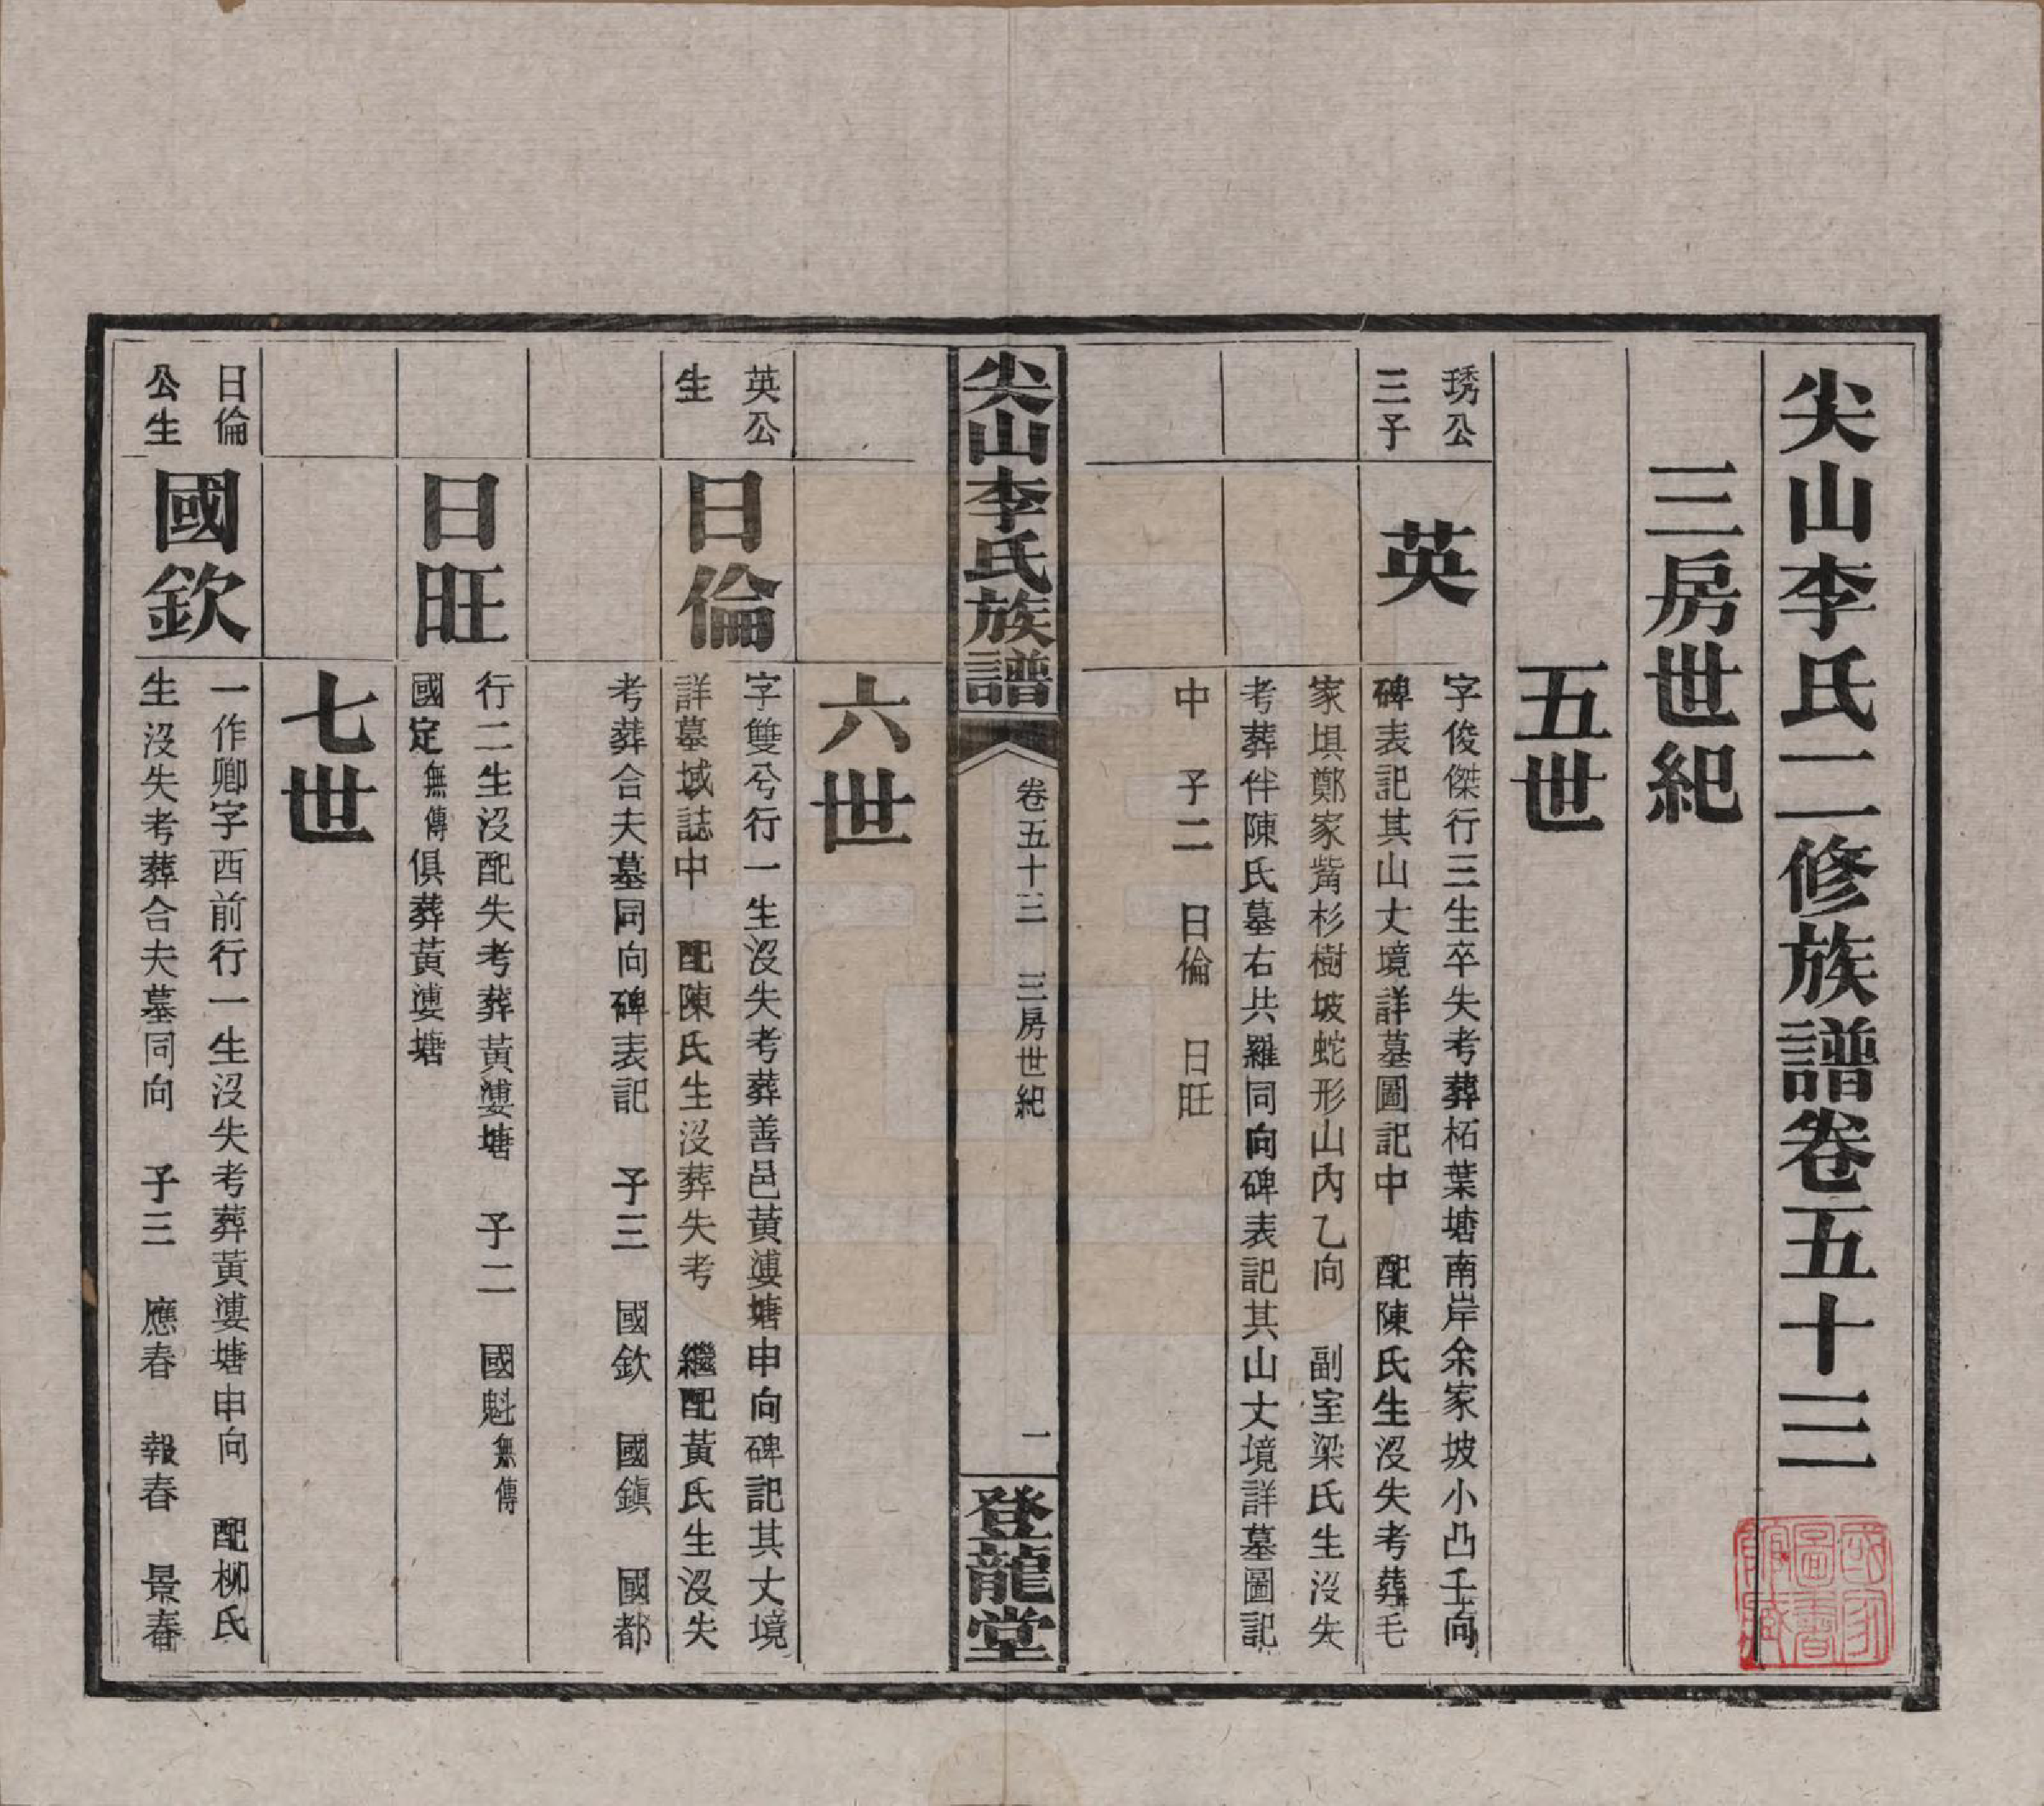 尖山李氏二修族譜卷五十三
三房世紀
五世
琇公
三子
英
字俊傑行三生卒失考葬柘葉塘南岸余家坡小凸壬向
碑表記其山丈境詳墓圖記中　配陳氏生沒失考葬毛
家垻鄭家觜杉樹坡蛇形山內乙向　副室梁氏生沒失
考葬伴陳氏墓右共羅同向碑表記其山丈境詳墓圖記
中　子二　日倫　日旺
尖山李氏族譜
卷五十三　三房世紀
一
登龍堂
六世
英公
生
日倫
字雙兮行一生沒失考葬善邑黃漊塘申向碑記其丈境
詳墓域誌中　配陳氏生沒葬失考　繼配黃氏生沒失
考葬合夫墓同向碑表記　子三　國欽　國鎮　國都
日旺
行二生沒配失考葬黃漊塘　子二　國魁無傳
國定無傳俱葬黃漊塘
七世
日倫
公生
國欽
一作卿字西前行一生沒失考葬黃漊塘申向　配柳氏
生沒失考葬合夫墓同向　子三　應春　報春　景春
國家
圖書
館藏